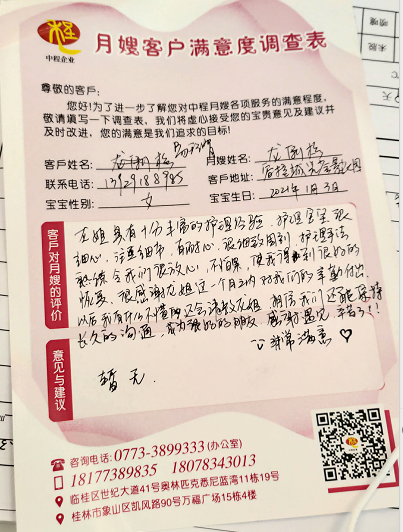 中程企业
月嫂客户满意度调查表
尊敬的客户:
您好!为了进一步了解您对中程月嫂各项服务的满意程度,
敬请填写一下调查表、我们将虚心接受您的宝贵意见及建议并
及时改进,您的满意是我们追求的目标!
客户姓名:
月嫂姓名:
联系电话:
客户地址:
宝宝性别: 女
宝宝生日: 2021年1月3日
客户对月嫂的评价
龙姐具有十分丰富的护理经验,护理宝宝很
细心,注意细节,有耐心,很细致周到,护理手法
熟练令我们很放心,不怕累,使我得到很好的
恢复,很感谢龙姐这一个月之内对我们的辛勤付出,
以后我有什么不懂的还会请教龙姐,相信我们还能保持
长久的沟通,成为很好的朋友,感谢遇见,辛苦了!!
非常满意
意见与建议
暂无
咨询电话:0773-3899333 (办公室)
18177389835 18078343013
临桂区世纪大道41号奥林匹克悉尼蓝湾11栋19号
桂林市象山区凯风路90号万福广场15栋4楼